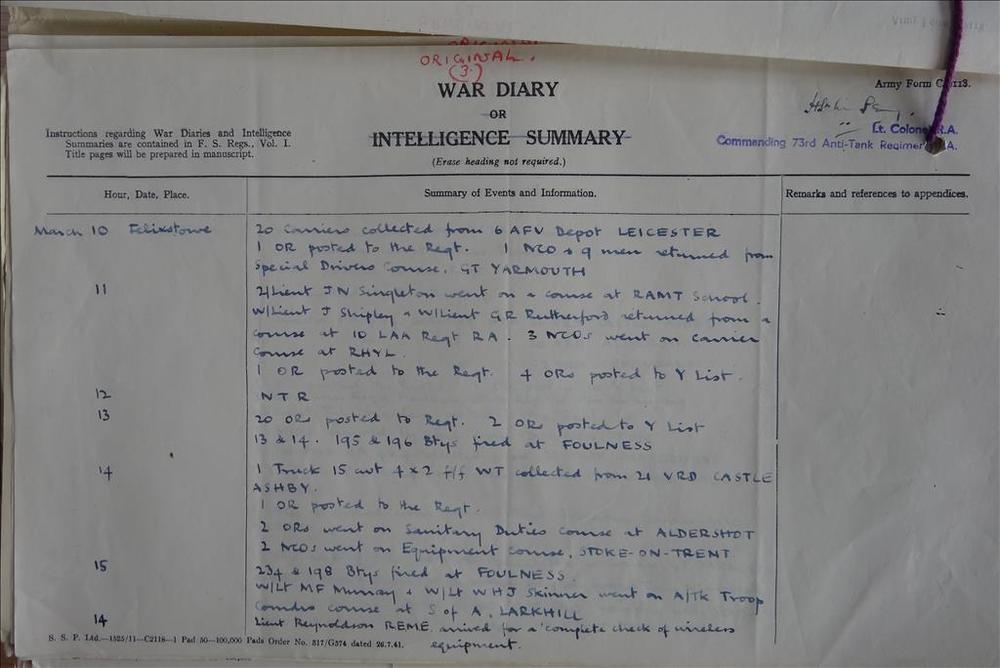 ORIGINAL.
(3.)
WAR DIARY
OR
INTELLIGENCE SUMMARY
(Erase heading not required.)
Army Form C. 2118.
Lt. Colonel R.A.
Commending 73rd Anti-Tank Regiment R.A.
Instructions regarding War Diaries and Intelligence
Summaries are contained in F. S. Regs., Vol. I.
Title pages will be prepared in manuscript.
Hour, Date, Place.
Summary of Events and Information.
Remarks and references to appendices.
March 10 Felixstowe
20 Carriers collected from 6 AFV Depot LEICESTER
1 OR posted to the Regt. 1 NCO & 9 men returned from
Special Drivers Course, GT YARMOUTH
11
2/Lieut JN Singleton went on a course at RAMT School.
W/Lieut J Shipley & W/Lieut GR Rutherford returned from a
course at 10 LAA Regt RA. 3 NCOs went on carrier
course at RHYL.
1 OR posted to the Regt. 4 ORs posted to Y List.
12
NTR
13
20 ORs posted to Regt. 2 ORs posted to Y List
13 & 14. 195 & 196 Btys fired at FOULNESS
14
1 Truck 15 cwt 4x2 f/f WT collected from 21 VRD CASTLE
ASHBY.
1 OR posted to the Regt.
2 ORs went on Sanitary Duties course at ALDERSHOT
2 NCOs went on Equipment course, STOKE-ON-TRENT
15
234 & 198 Btys fired at FOULNESS.
W/Lt MF Murray & W/Lt WHJ Skinner went on A/Tk Troop
Comdrs course at S of A, LARKHILL
14
Lieut Reynoldson REME arrived for a complete check of wireless
equipment.
S. S. P. Ltd.—1525/11—C2118—1 Pad 50—100,000 Pads Order No. 817/G574 dated 26.7.41.